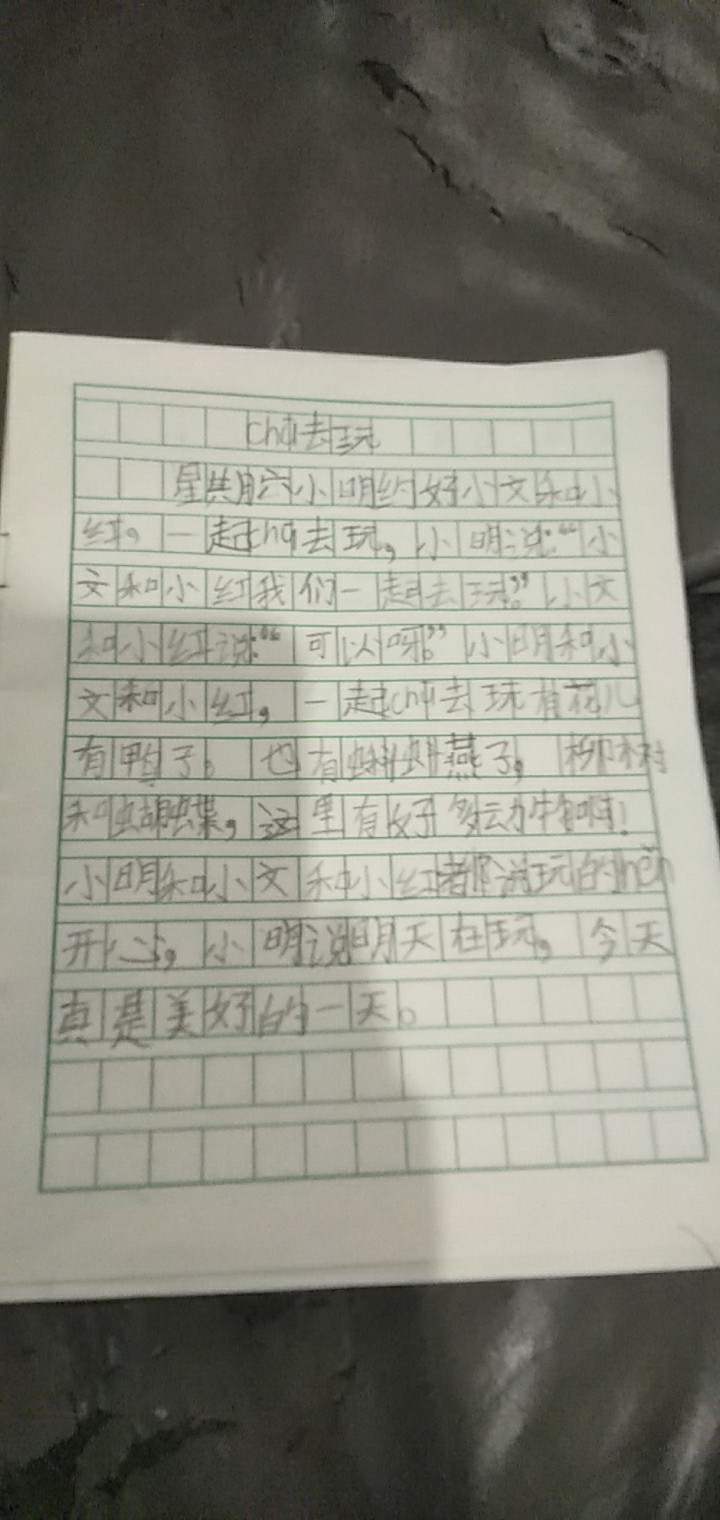 chū去玩
星其月六小明约好小文和小
红。一起chū去玩,小明说:“小
文和小红我们一起去玩。”小文
和小红说:“可以呀。”小明和小
文和小红,一起chū去玩有花儿
有鸭子。也有蝌蚪燕子,柳树
和蝴蝶,这里有好多动牛勿啊!
小明和小文和小红都说玩的hěn
开心,小明说明天在玩,今天
真是美好的一天。